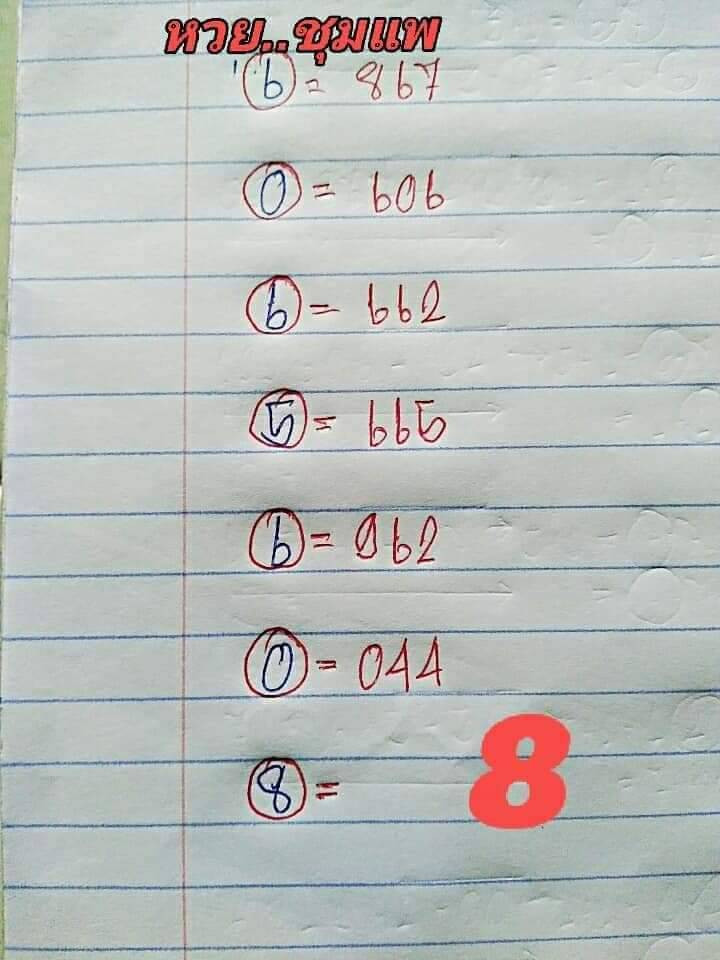 หวย..ชุมแพ
6 = 867
0 = 606
6 = 662
5 = 665
6 = 962
0 = 044
8 =
8